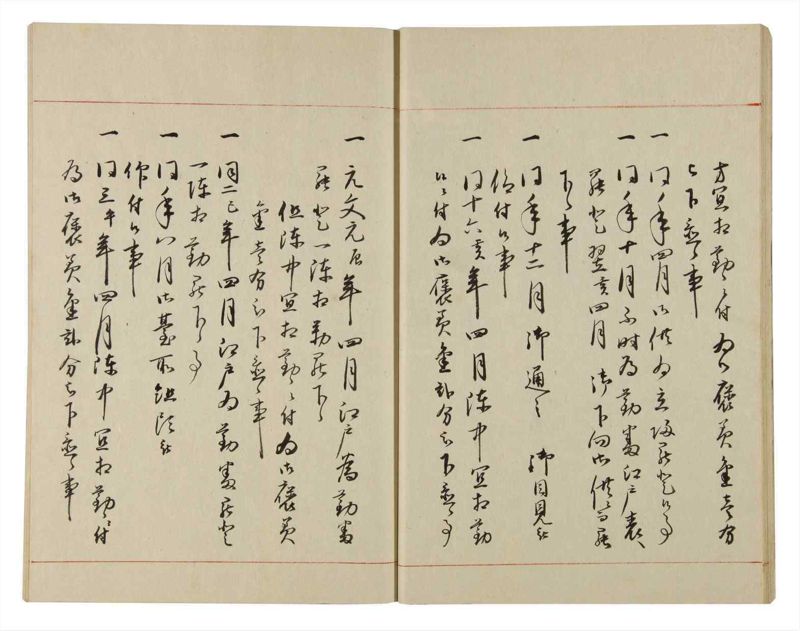 方宜相勤候付為御褒美金壱分
被下置候事
一 同年四月御供為立帰罷登候事
一 同年十月不時為勤番江戸表江
罷登翌亥四月 御下向御供ニ而罷
下候事
一 同年十二月 御通之 御目見被
仰付候事
一 同十六亥年四月陳中宜相勤
候ニ付為御褒美金弐分被下置候事
一 元文元辰年四月江戸為勤番
罷登一陳相勤罷下候
但陳中宜相勤候付為御褒美
金壱分被下置候事
一 同二巳年四月江戸為勤番罷登
一陳相勤罷下候事
一 同年八月御台所組頭被
仰付候事
一 同三午年四月陳中宜相勤候付
為御褒美金弐分被下置候事